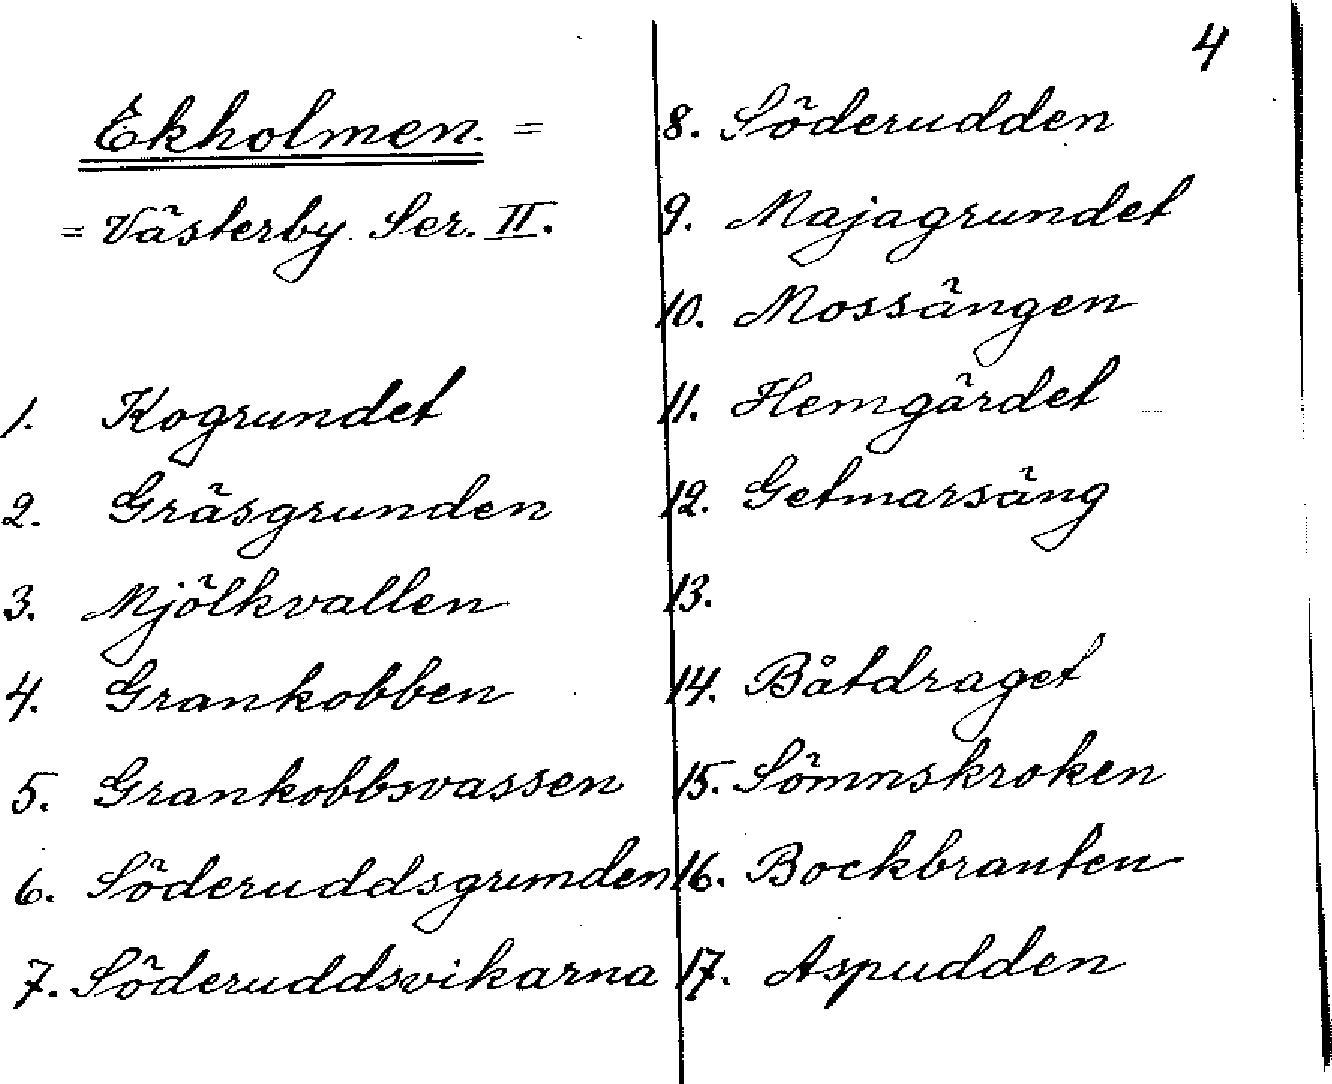 4
Ekholmen. =
= Västerby Ser. II.
1. Kogrundet
2. Gräsgrunden
3. Mjölkvallen
4. Grankobben
5. Grankobbsvassen
6. Söderuddsgrunden
7. Söderuddsvikarna
8. Söderudden
9. Majagrundet
10. Mossängen
11. Hemgärdet
12. Getmarsäng
13.
14. Båtdraget
15. Sömnskroken
16. Bockbranten
17. Aspudden